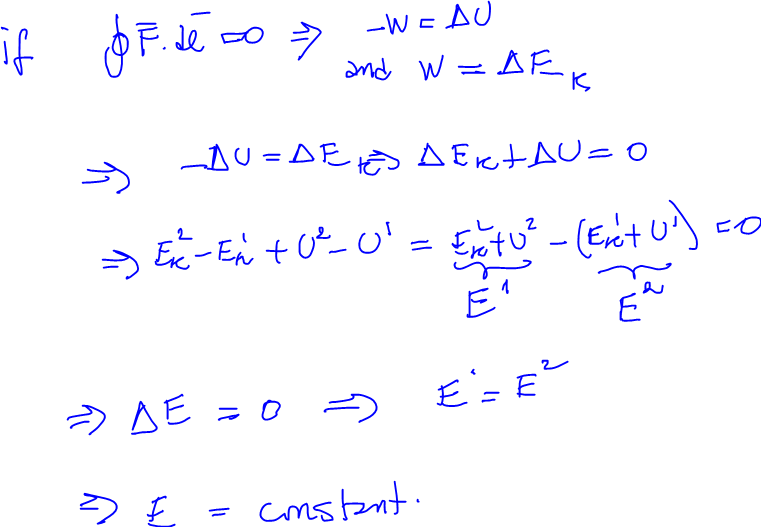 if ∮ F̄ · dl̄ = 0 ⇒ -W = ΔU
and W = ΔE_K
⇒ -ΔU = ΔE_K ⇒ ΔE_K + ΔU = 0
⇒ E_K^2 - E_K^1 + U^2 - U^1 = E_K^2 + U^2 - (E_K^1 + U^1) = 0
E^1 E^2
⇒ ΔE = 0 ⇒ E^1 = E^2
⇒ E = constant.